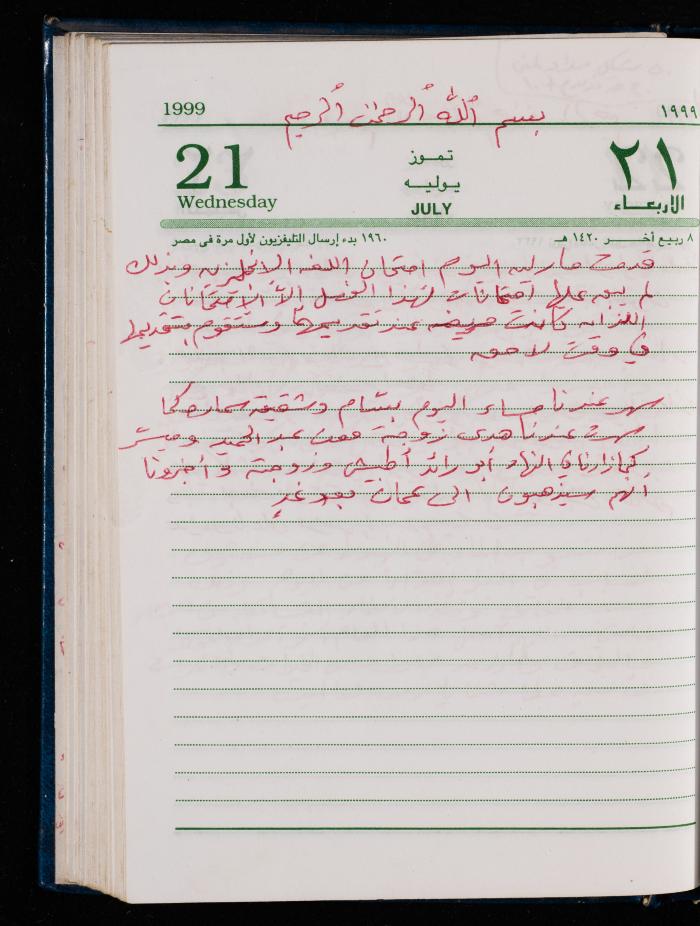 1999 بسم الله الرحمن الرحيم ١٩٩٩
21 تموز ٢١
Wednesday يوليه الاربعاء
JULY
٨ ربيع آخر ١٤٢٠ هـ ١٩٦٠ بدء إرسال التليفزيون لأول مرة في مصر
قدمت مارلين اليوم امتحان اللغه الانجليزيه وبذلك
لم يبق عليها امتحانات لهذا الفصل الا الامتحانان
اللذان كانت مريضه عند تقديمها وستقوم بتقديمها
في وقت لاحق
سهر عندنا مساء اليوم بسام وشقيقته كما
سهرت عندنا هدى زوجة عبد الحميد
كما زارنا في النهار أبو رائد وزوجته وأخبرونا
أنهم سيذهبون الى عمان بعد غدٍ